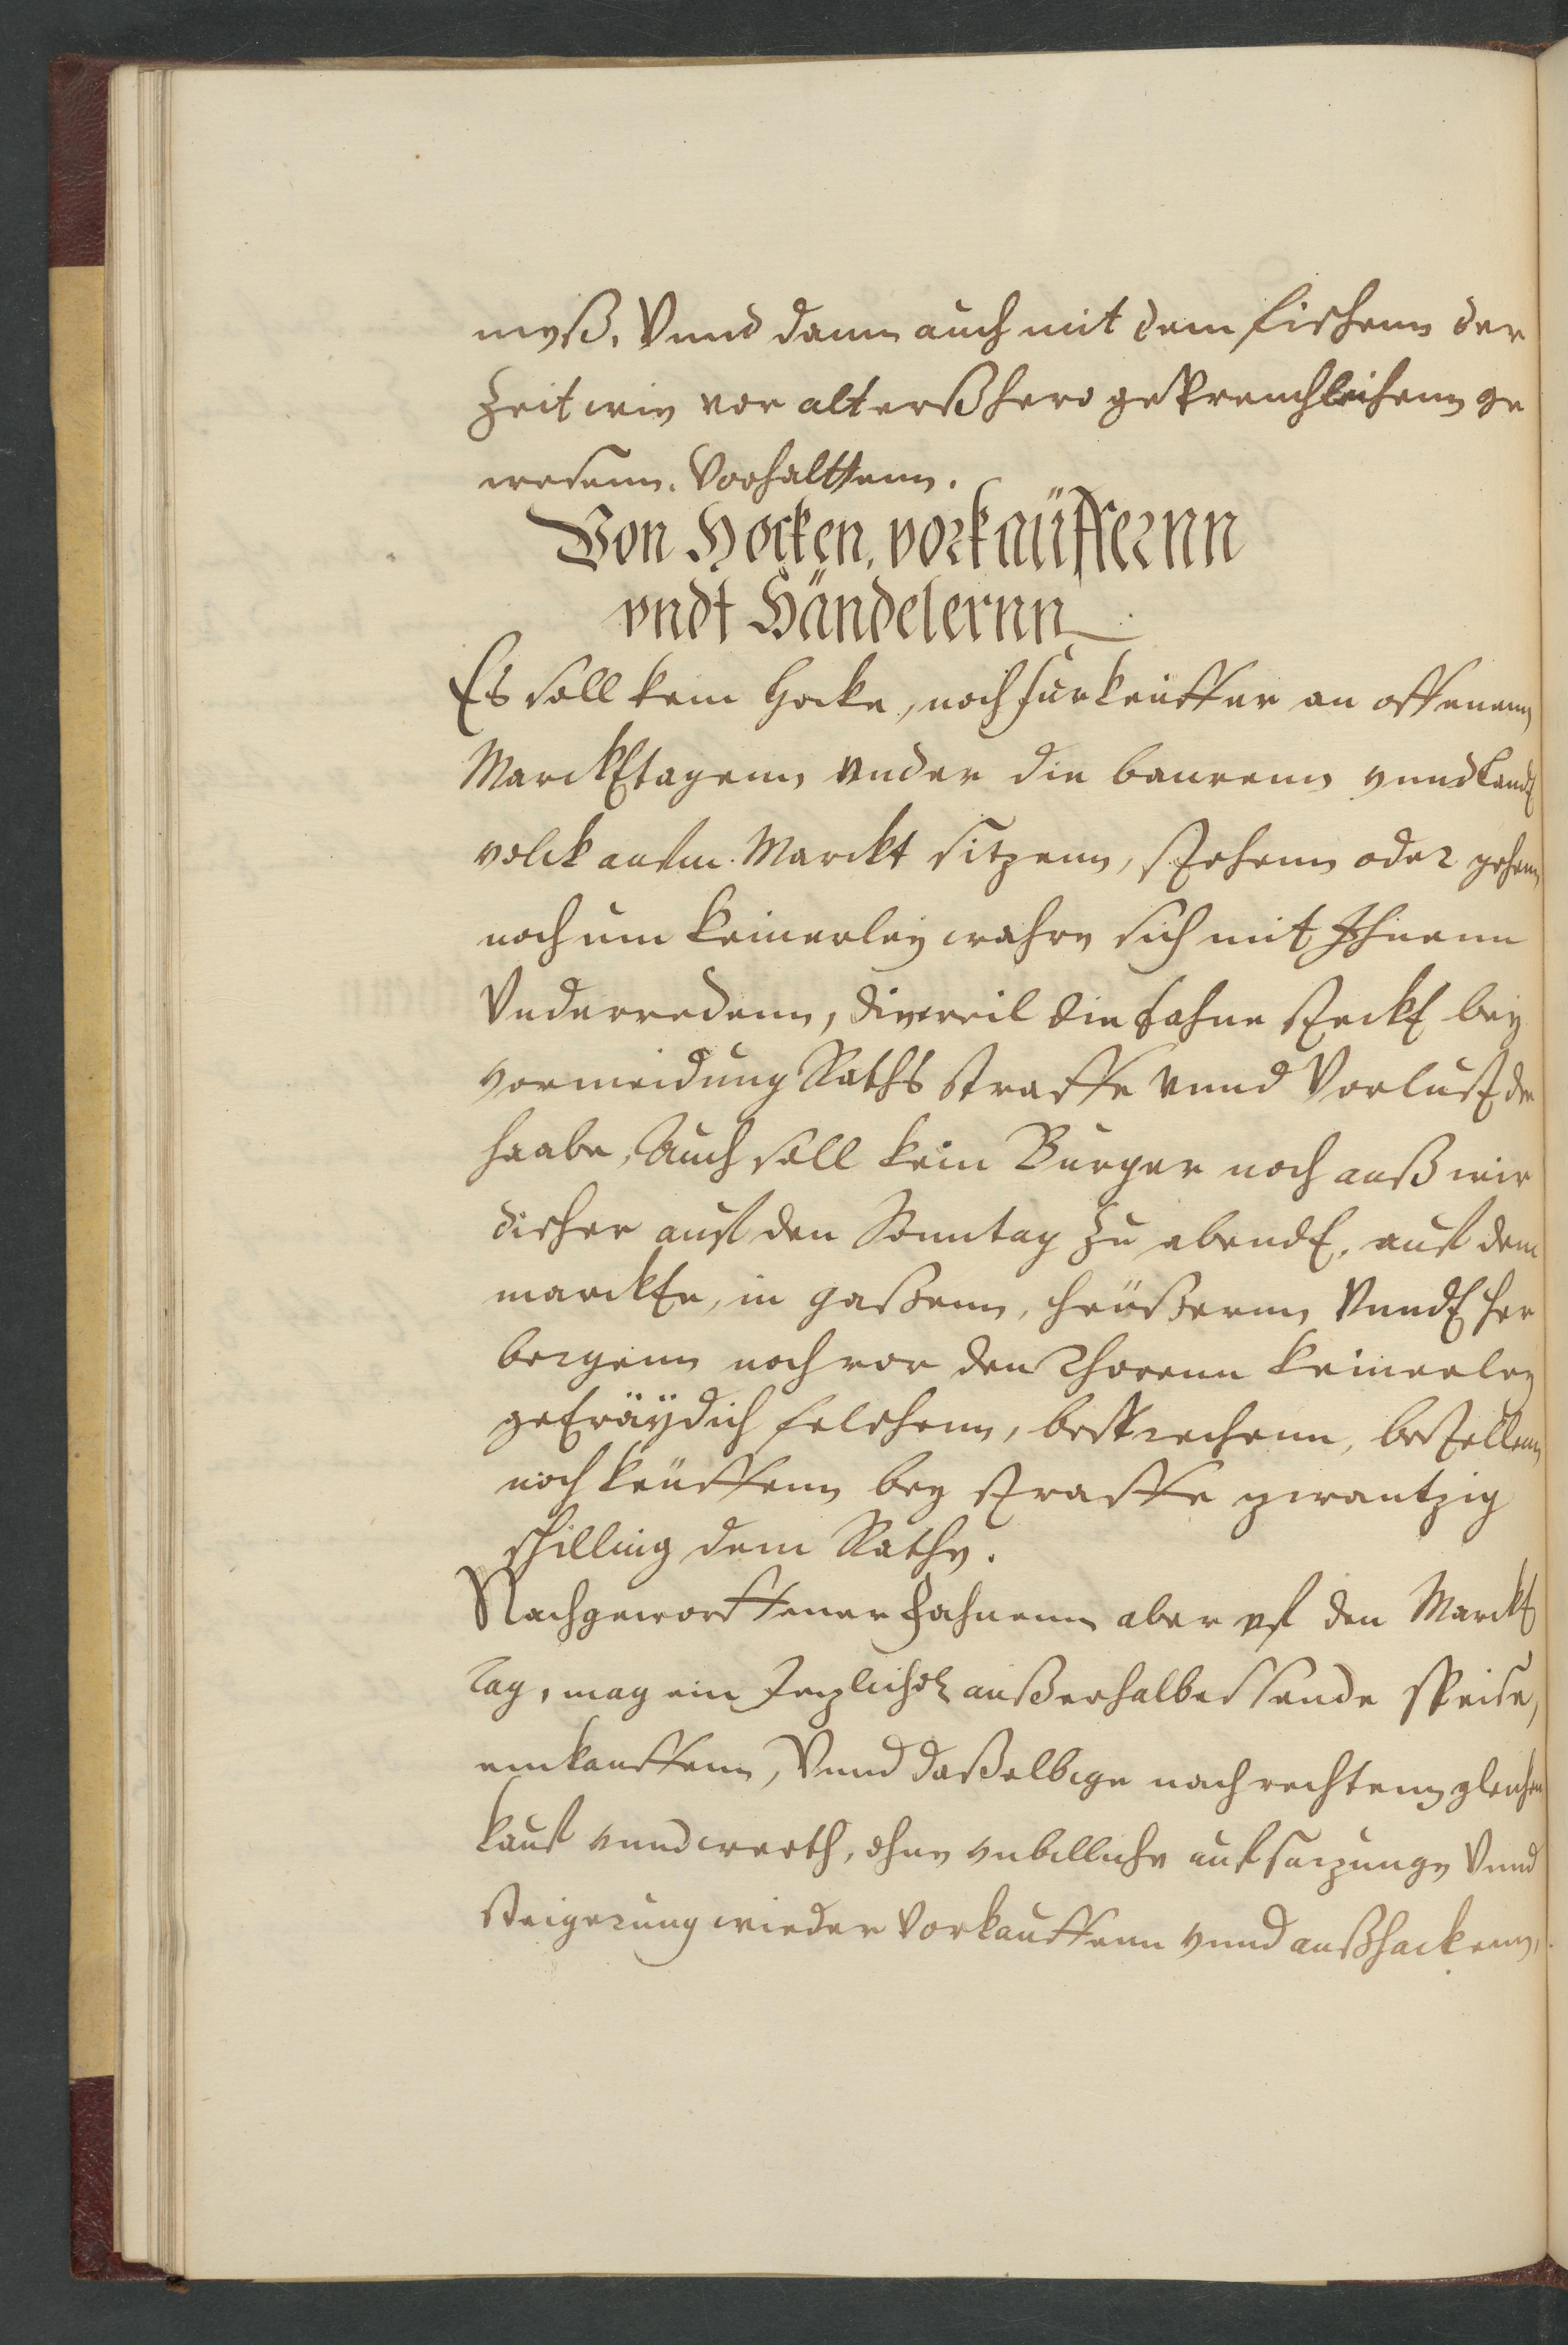 meß. Vnnd dann auch mit dem fischenn der
Zeit wie vor alterßhero gepreuchlichenn ge
wesenn. Vorhalttenn.
Von Hocken, vorkäüffernn
vndt Händelernn
Es soll kein Hocke, noch furkeuffer an offenenn
Marckttagenn vnder die baurenn vnnd Landt
volck aufm Marckt sitzenn, stehenn oder gehenn
noch um keinerley wahre sich mit Ihnenn
Vnderredenn, dieweil die fahne steckt bey
vormeidung Raths straffe vnnd Vorlust der
haabe, Auch soll kein Burger noch außwir
discher auf den Sonntag zu abendt, auf dem
marckte, in gaßenn, heüßernn Vnndt her
bergenn noch vor den Thorenn keinerley
geträÿdich felschenn, besprechenn, bestellenn
noch keuffenn bey straffe zwantzig
schilling dem Rathe.
Nachgeworffener fahnenn aber vf den Marckt
Tag, mag ein Jezlicher außerhalb essende speise,
einkauffenn, Vnnd daßelbige nach rechtenn gleichen
kauf vnnd werth, ohne vnbilliche aufsazunge Vnnd
steigerung wieder Vorkauffenn vnnd außhackenn,